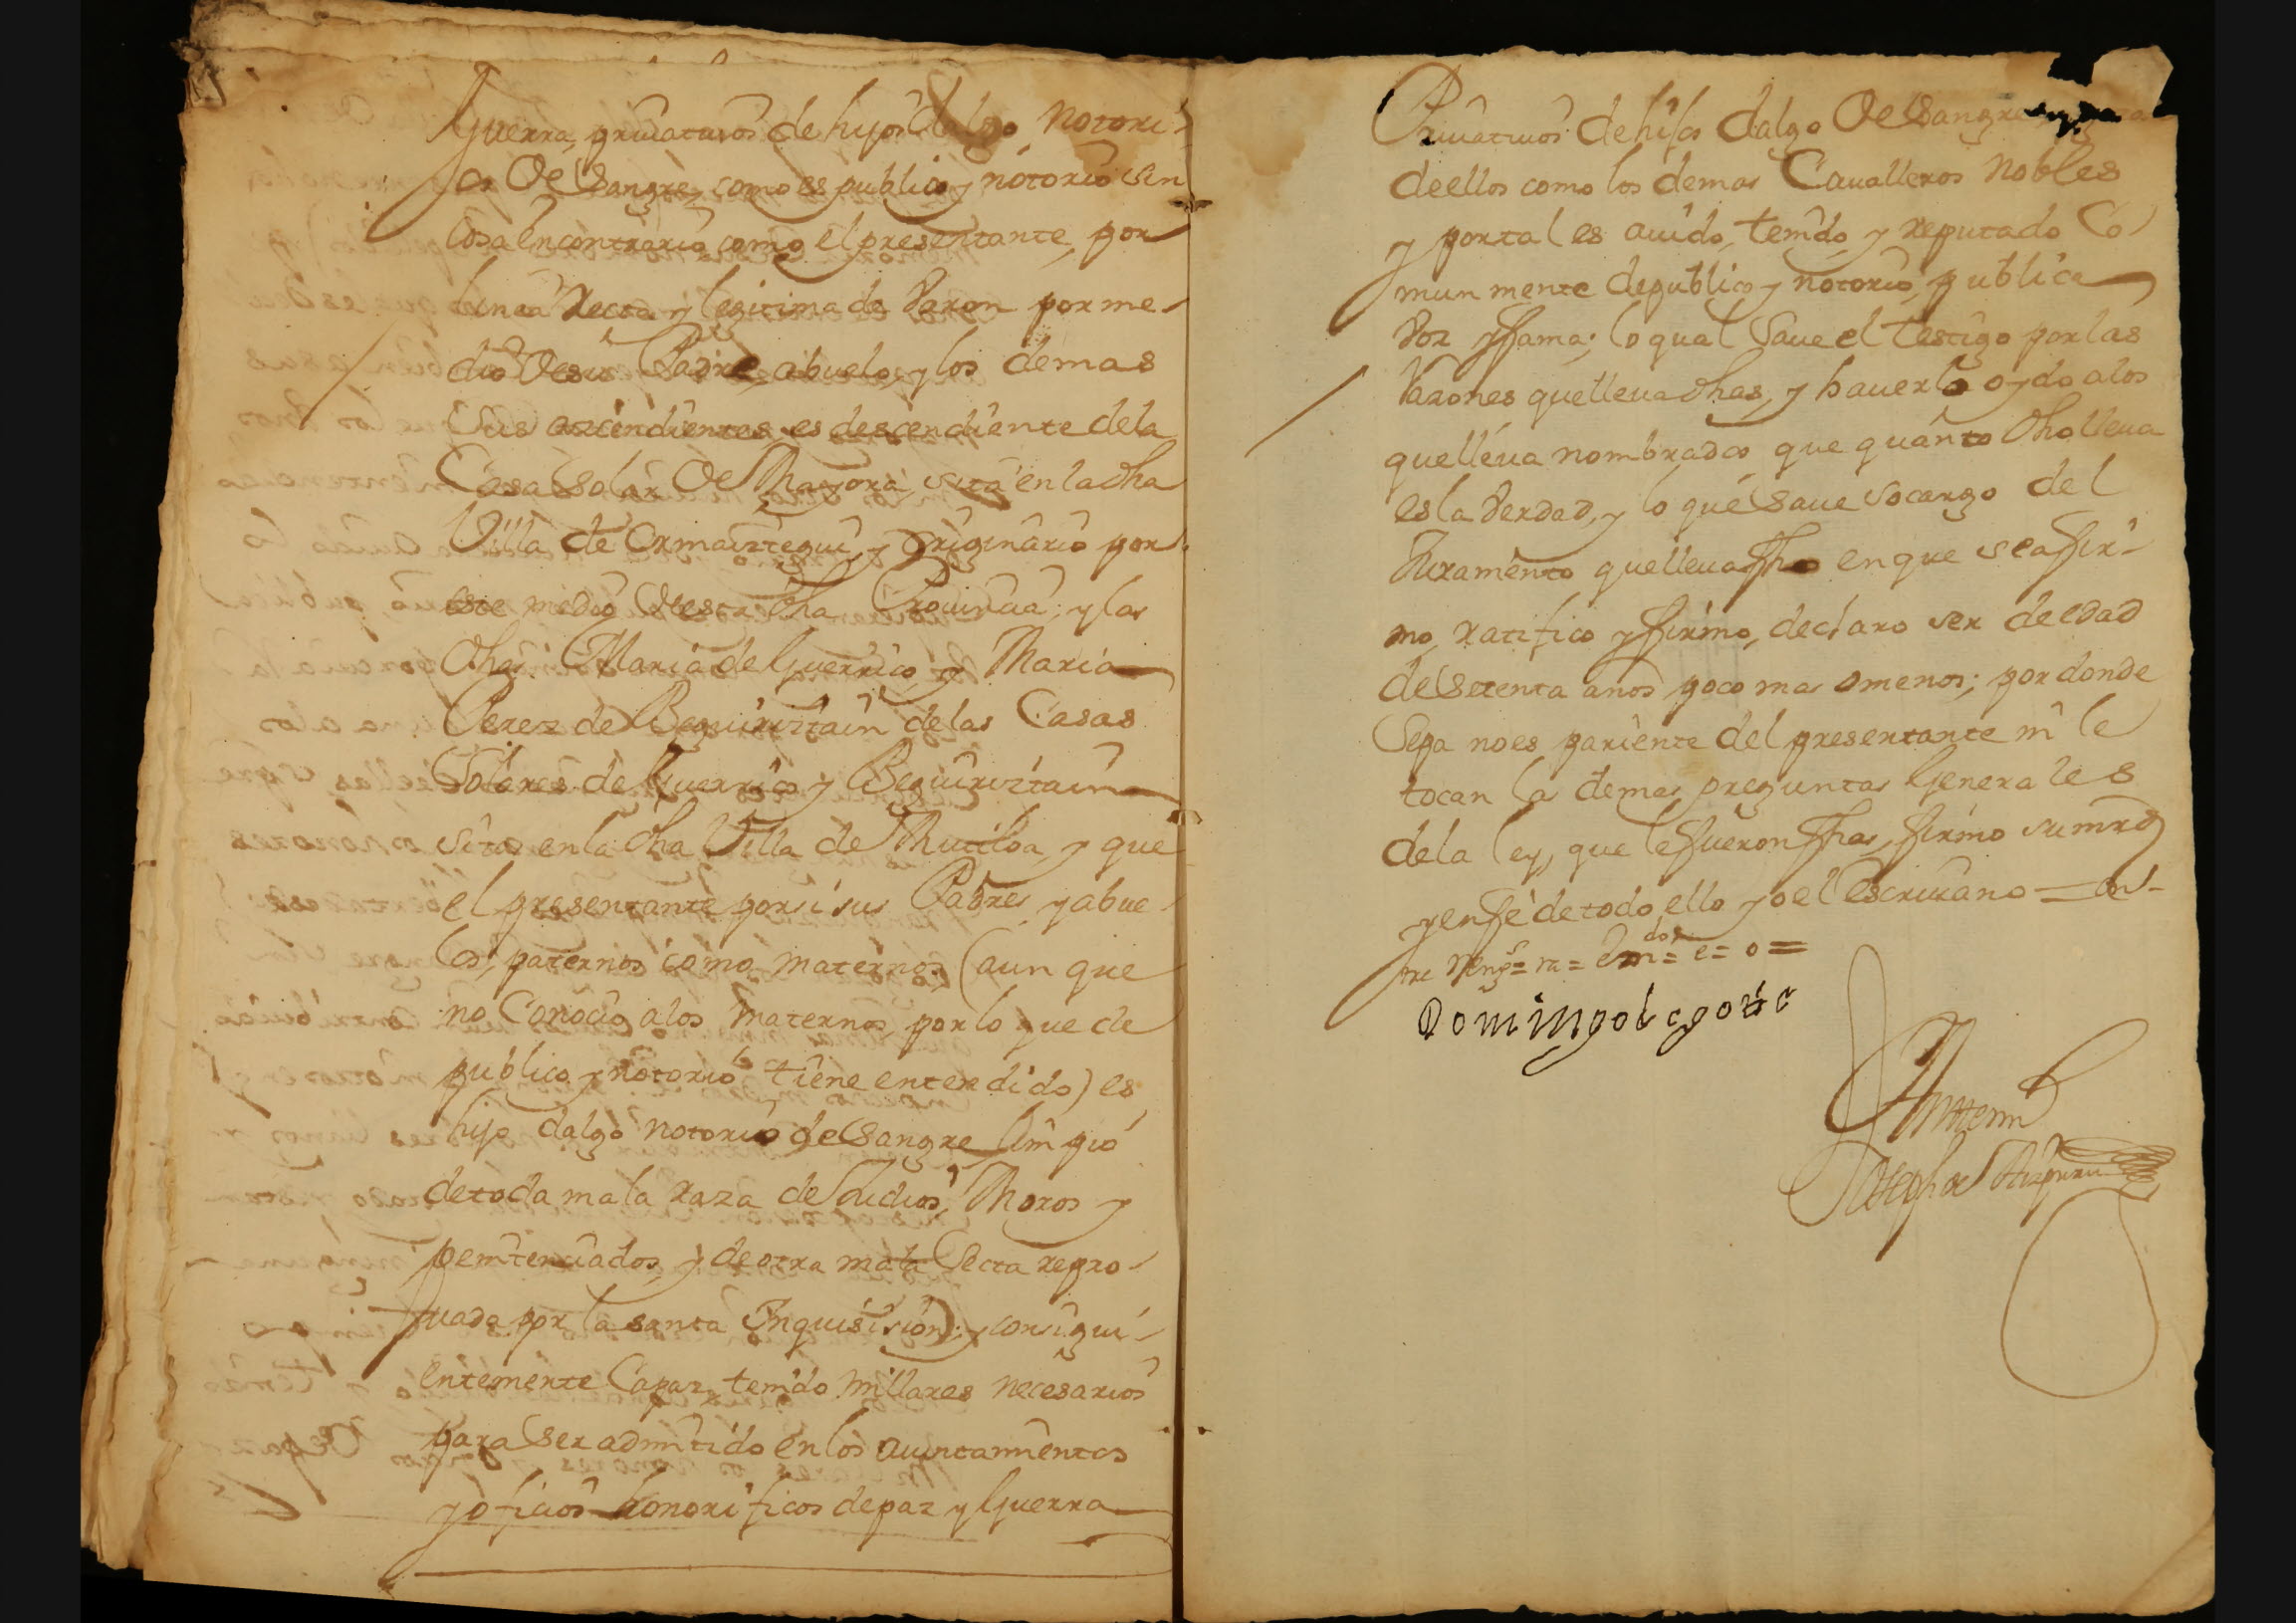 Guerra, priuatiuos de hijos dalgo notori-
os De Sangre, como es publico y notorio sin
cosa en contrario como el presentante, por
linea Recta y legitima de Varon por me-
dio de su Padre, abuelo, y los demas
sus ascendientes es descendiente de la
Casa Solar De Mayora, sita en la dha
Villa de Ormaiztegui, y originario por
este medio desta dha Prouincia; y las
dhas Maria de Guerrico, y Maria
Perez de Beguiriztain de las Casas
Solares de Guerrico y Beguiriztain
sitas en la dha Villa de Mutiloa, y que
el presentante por si sus Padres, y abue-
los, paternos como maternos, (aun que
no Conocio a los maternos, por lo que de
publico y notorio tiene entendido) es
hijo dalgo notorio de Sangre limpio
de toda mala raza de Judios, Moros y
penitenciados, y de otra mala Secta repro-
uada por la santa Inquisision; y consigui-
entemente Capaz, tenido millares necesarios
para ser admitido en los auintamientos
y oficios honorificos de paz y Guerra
Priuatiuos de hijos dalgo De Sangre
de ellos como los demas Caualleros Nobles
y por tal es auido, tenido, y reputado Co-
mun mente de publico y notorio, publica
voz y fama; lo qual saue el testigo por las
razones que lleua dhas, y hauerlo oydo a los
que lleua nombrados que quanto dho lleua
es la verdad, y lo que saue so cargo del
Juramento que lleua fho en que se afir-
mo, ratifico y firmo, declaro ser de edad
de setenta años poco mas o menos; por donde
sepa no es pariente del presentante ni le
tocan las demas preguntas Generales
de la ley, que le fueron fhas, firmo su mrd
y en fé de todo ello yo el escriuano = en-
tre reng.s = ra = dos = e = o =
Domingo de
Ante mi
Joseph de Aizpuru